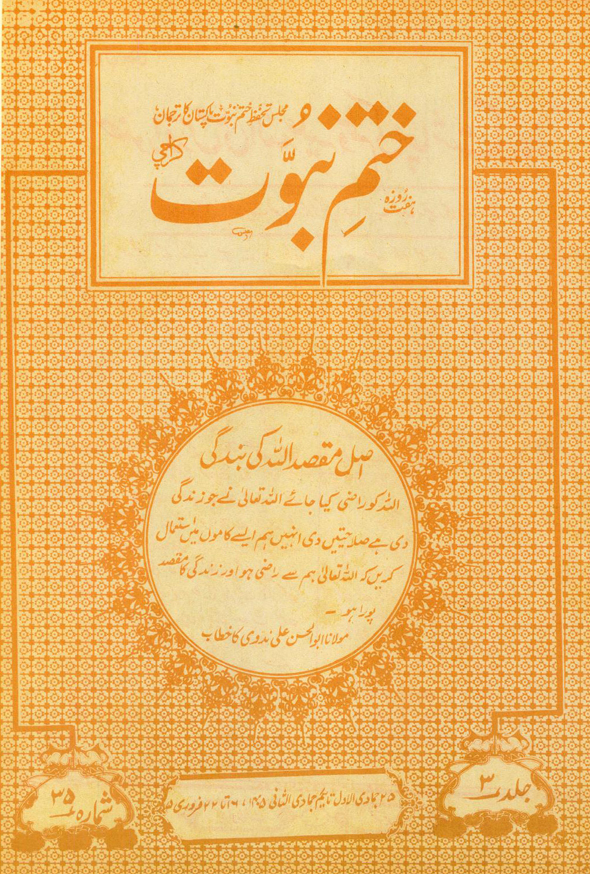 مجلس تحفظ ختم نبوت پاکستان کا ترجمان
ہفت روزہ
ختمِ نبوَّت
کراچی
اصل مقصد اللہ کی بندگی
اللہ کو راضی کیا جائے اللہ تعالیٰ نے جو زندگی
دی ہے صلاحیتیں دی انہیں ہم ایسے کاموں میں استعمال
کریں کہ اللہ تعالیٰ ہم سے راضی ہو اور زندگی کا مقصد
پورا ہو ۔
مولانا ابوالحسن علی ندوی کا خطاب
جلد ۳
۲۵ جمادی الاول تا یکم جمادی الثانی ۱۴۰۵، ۱۶ تا ۲۲ فروری ۸۵
شمارہ ۳۵